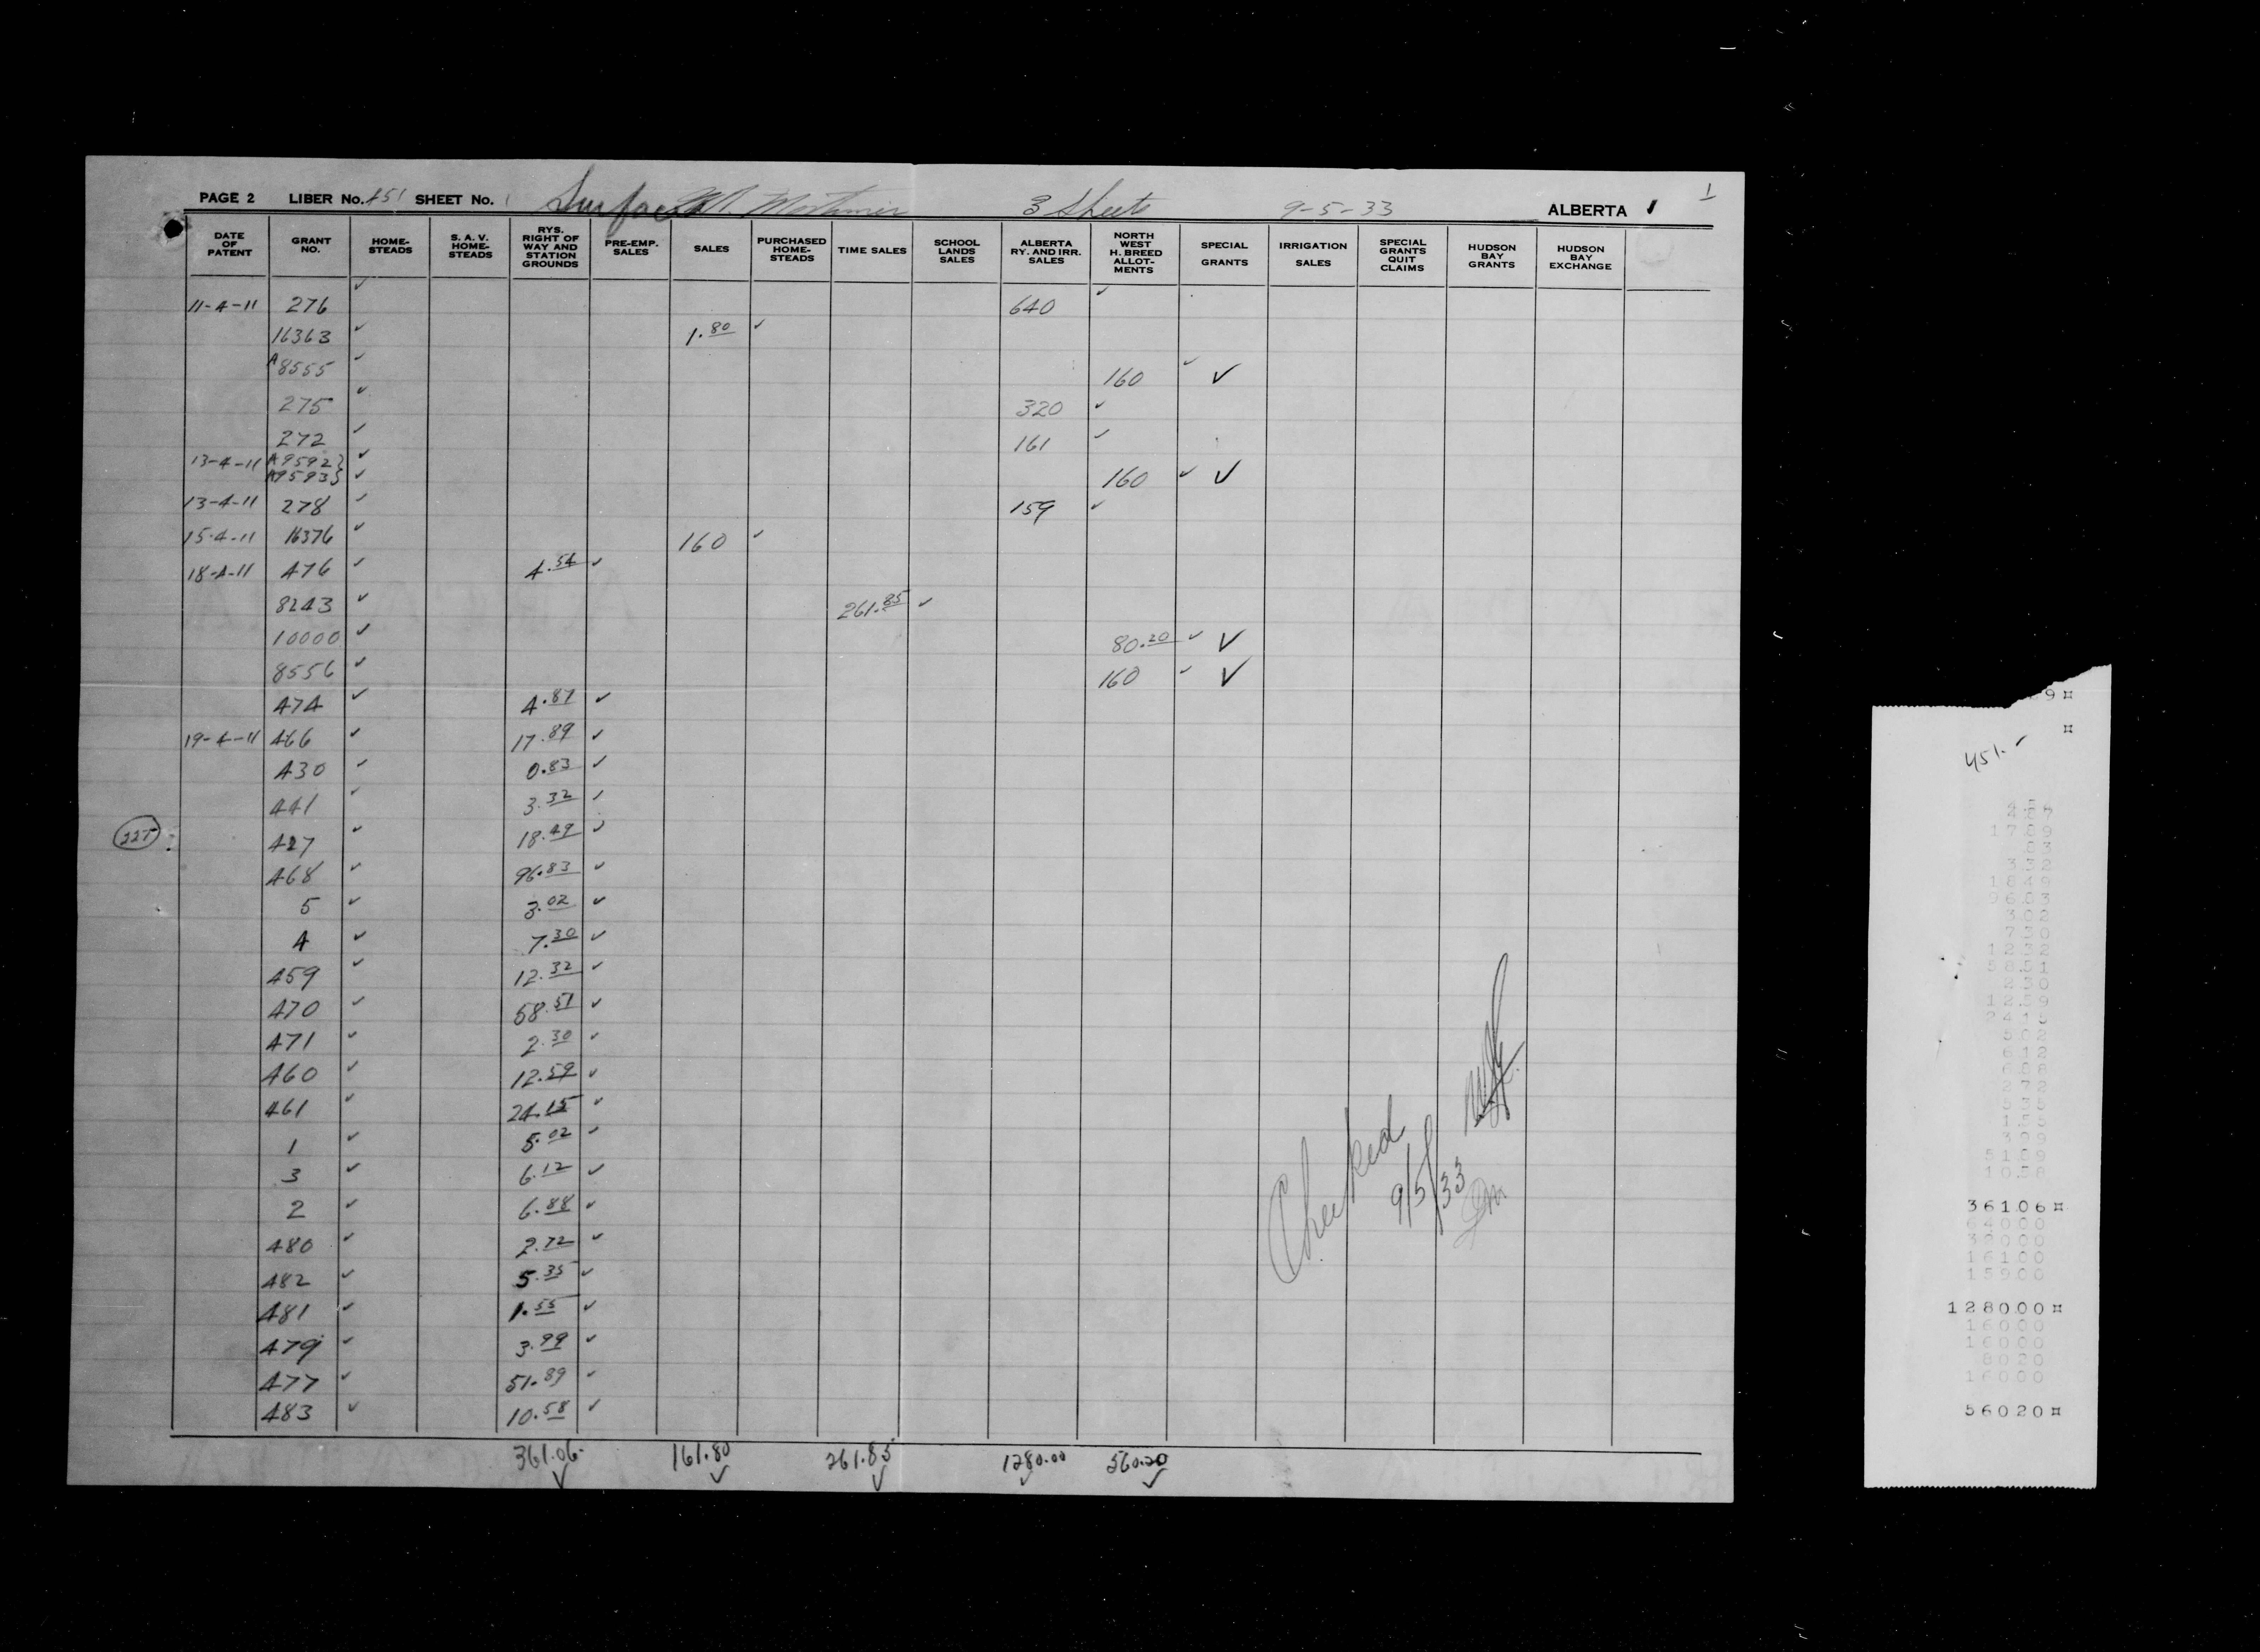 PAGE 2 LIBER No. 451 SHEET No. 1 Surface Mortimer 3 Sheets 9-5-33 ALBERTA 1
DATE OF PATENT GRANT NO. HOME-STEADS S. A. V. HOME-STEADS RYS. RIGHT OF WAY AND STATION GROUNDS PRE-EMP. SALES SALES PURCHASED HOME-STEADS TIME SALES SCHOOL LANDS SALES ALBERTA RY. AND IRR. SALES NORTH WEST H. BREED ALLOT-MENTS SPECIAL GRANTS IRRIGATION SALES SPECIAL GRANTS QUIT CLAIMS HUDSON BAY GRANTS HUDSON BAY EXCHANGE
11-4-11 276 ✓ 640 ✓
16363 ✓ 1.80 ✓
A8555 ✓ 160 ✓ ✓
275 ✓ 320 ✓
272 ✓ 161 ✓
13-4-11 A9592} ✓
A9593} ✓ 160 ✓ ✓
13-4-11 278 ✓ 159 ✓
15-4-11 16376 ✓ 160 ✓
18-4-11 476 ✓ 4.54 ✓
8243 ✓ 261.85 ✓
10000 ✓ 80.20 ✓ ✓
8556 ✓ 160 ✓ ✓
474 ✓ 4.87 ✓
19-4-11 466 ✓ 17.89 ✓
430 ✓ 0.83 ✓
441 ✓ 3.32 ✓
225 427 ✓ 18.49 ✓
468 ✓ 96.83 ✓
5 ✓ 3.02 ✓
4 ✓ 7.30 ✓
459 ✓ 12.32 ✓
470 ✓ 58.51 ✓
471 ✓ 2.30 ✓
460 ✓ 12.59 ✓
461 ✓ 24.15 ✓
1 ✓ 5.02 ✓
3 ✓ 6.12 ✓
2 ✓ 6.88 ✓
480 ✓ 2.72 ✓
482 ✓ 5.35 ✓
481 ✓ 1.55 ✓
479 ✓ 3.99 ✓
477 ✓ 51.89 ✓
483 ✓ 10.58 ✓
361.06 161.80 261.85 1280.00 560.20
✓ ✓ ✓ ✓ ✓
Checked
9/5/33
451.-
4.87
17.89
3.32
18.49
96.83
3.02
7.30
12.32
58.51
2.30
12.59
24.15
5.02
6.12
2.72
1.55
3.99
51.89
10.58
361.06¤
640.00
320.00
161.00
159.00
1280.00¤
160.00
160.00
80.20
160.00
560.20¤